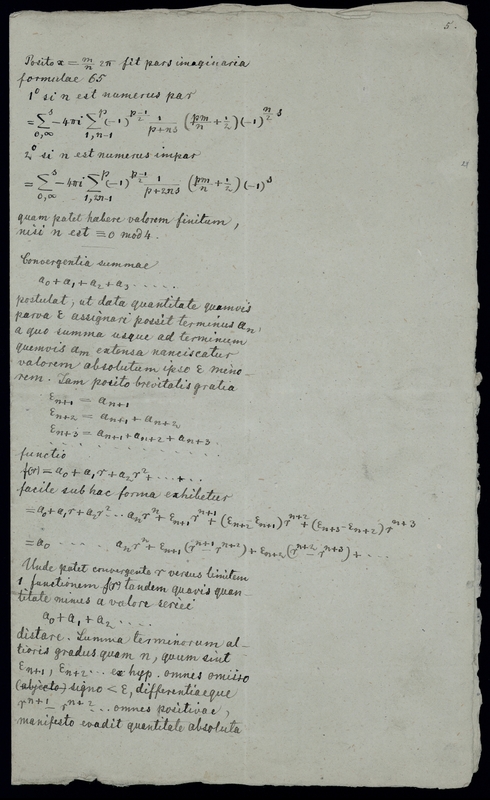 5.
Posito x = m/n 2π fit pars imaginaria
formulae 65
1° si n est numerus par
= Σ^s_{0,∞} − 4πi Σ^p_{1,n-1} (−1)^{p-½} 1/(p+ns) (pm/n + ½) (−1)^{n/2 s}
2° si n est numerus impar
= Σ^s_{0,∞} − 4πi Σ^p_{1,2n-1} (−1)^{p-½} 1/(p+2ns) (pm/n + ½) (−1)^s
quam patet habere valorem finitum,
nisi n est ≡ 0 mod 4.
Convergentia summae
a0 + a1 + a2 + a3 . . . . .
postulat, ut data quantitate quamvis
parva ε assignari possit terminus an,
a quo summa usque ad terminum
quemvis am extensa nanciscatur
valorem absolutum ipso ε mino-
rem. Iam posito brevitatis gratia
εn+1 = an+1
εn+2 = an+1 + an+2
εn+3 = an+1 + an+2 + an+3
. . . . . . . .
functio
f(r) = a0 + a1 r + a2 r² + . . . + . .
facile sub hac forma exhibetur
= a0 + a1 r + a2 r² . . . an r^n + εn+1 r^{n+1} + (εn+2 − εn+1) r^{n+2} + (εn+3 − εn+2) r^{n+3}
= a0 . . . . . . an r^n + εn+1 (r^{n+1} − r^{n+2}) + εn+2 (r^{n+2} − r^{n+3}) + . . .
Unde patet convergente r versus limitem
1 functionem f(r) tandem quavis quan-
titate minus a valore seriei
a0 + a1 + a2 . . . .
distare. Summa terminorum al-
tioris gradus quam n, quum sint
εn+1, εn+2 . . . ex hyp. omnes omisso
(abjecto) signo < ε, differentiaeque
r^{n+1} − r^{n+2} . . . omnes positivae,
manifesto evadit quantitate absoluta